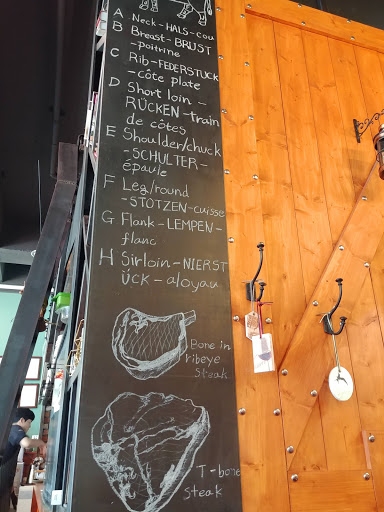 A Neck-HALS-cou
B Breast-BRUST
-poitrine
C Rib-FEDERSTUCK
-côte plate
D Short loin-
RÜCKEN-train
de côtes
E Shoulder/chuck
-SCHULTER-
épaule
F Leg/round
-STOTZEN-cuisse
G Flank-LEMPEN-
flanc
H Sirloin-NIERST
ÜCK-aloyau
Bone in
ribeye
steak
T-bone
steak